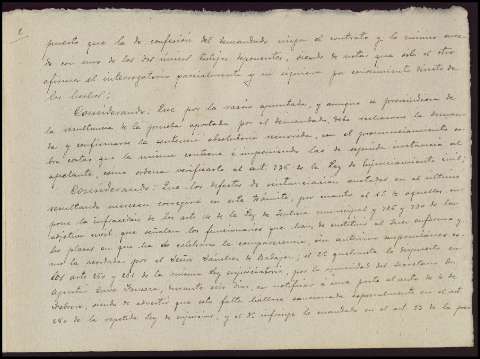 2
puesto que la de confesión del demandado niega el contrato y lo mismo suce-
de con uno de los dos menos testigos deponentes, siendo de notar que solo el otro
afirma el interrogatorio parcialmente y sin expresar por conocimiento directo de
los hechos;
Considerando: Que por la razón apuntada, y aunque se prescindiera de
la resultancia de la prueba aportada por el demandado, debe rechazarse la deman-
da y confirmarse la sentencia absolutoria recurrida, con el pronunciamiento so-
bre costas que la misma contiene e imponiendo las de segunda instancia al
apelante, como ordena verificarlo el art. 736 de la Ley de Enjuiciamiento civil;
Considerando: Que los defectos de sustanciación anotados en el último
resultando merecen corregirse en este trámite, por cuanto el 1º de aquellos, su-
pone la infracción de los arts. de la Ley de Justicia municipal y de la
adjetiva civil, que señalan los funcionarios que han de sustituir al Juez enfermo y
los plazos en que ha de celebrarse la comparecencia, sin autorizar suspensiones co-
mo la acordada por el Señor Sánchez de Badajoz; el 2º quebranta lo dispuesto en
los arts. 260 y 261 de la misma Ley enjuiciadora, por la del Secretario Sr.
durante seis días, en notificar a una parte el auto de 4 de
Febrero, siendo de advertir que esta falta hállase sancionada especialmente en el art.
280 de la repetida Ley de enjuiciar, y el 3º infringe lo mandado en el art. 23 de la